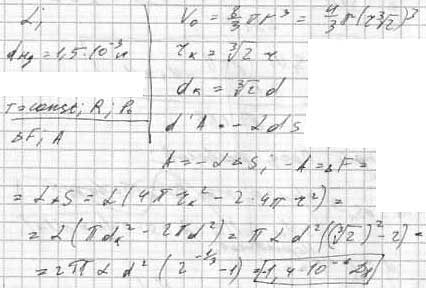 α;
d_Hg = 1,5·10⁻³ м
T = const; R; P₀
ΔF; A
V₀ = 8/3 πr³ = 4/3 π(r∛2)³
r_к = ∛2 r
d_к = ∛2 d
d'A = -α dS
A = -α ΔS; -A = ΔF =
= α ΔS = α(4πr_к² - 2·4πr²) =
= α(πd_к² - 2πd²) = παd²((∛2)² - 2) =
= 2παd²(2^(-1/3) - 1) =